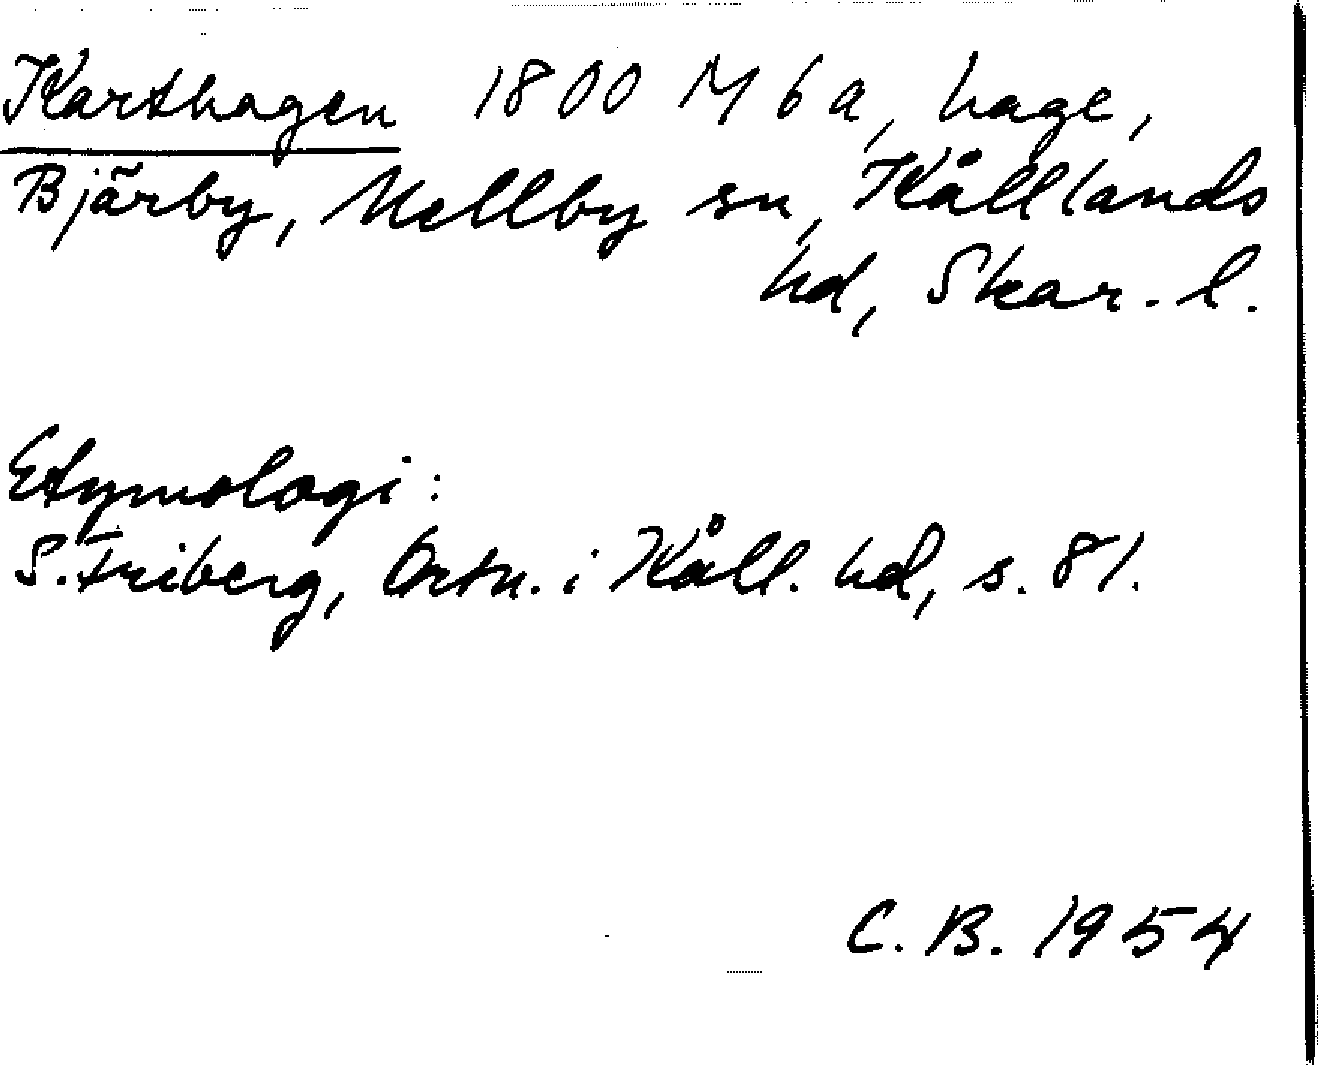 Karthagen 1800 M 6 a, hage,
Bjärby, Mellby sn, Kållands
hd, Skar. l.
Etymologi:
S. Friberg, Ortn. i Kåll. hd, s. 81.
C. B. 1954